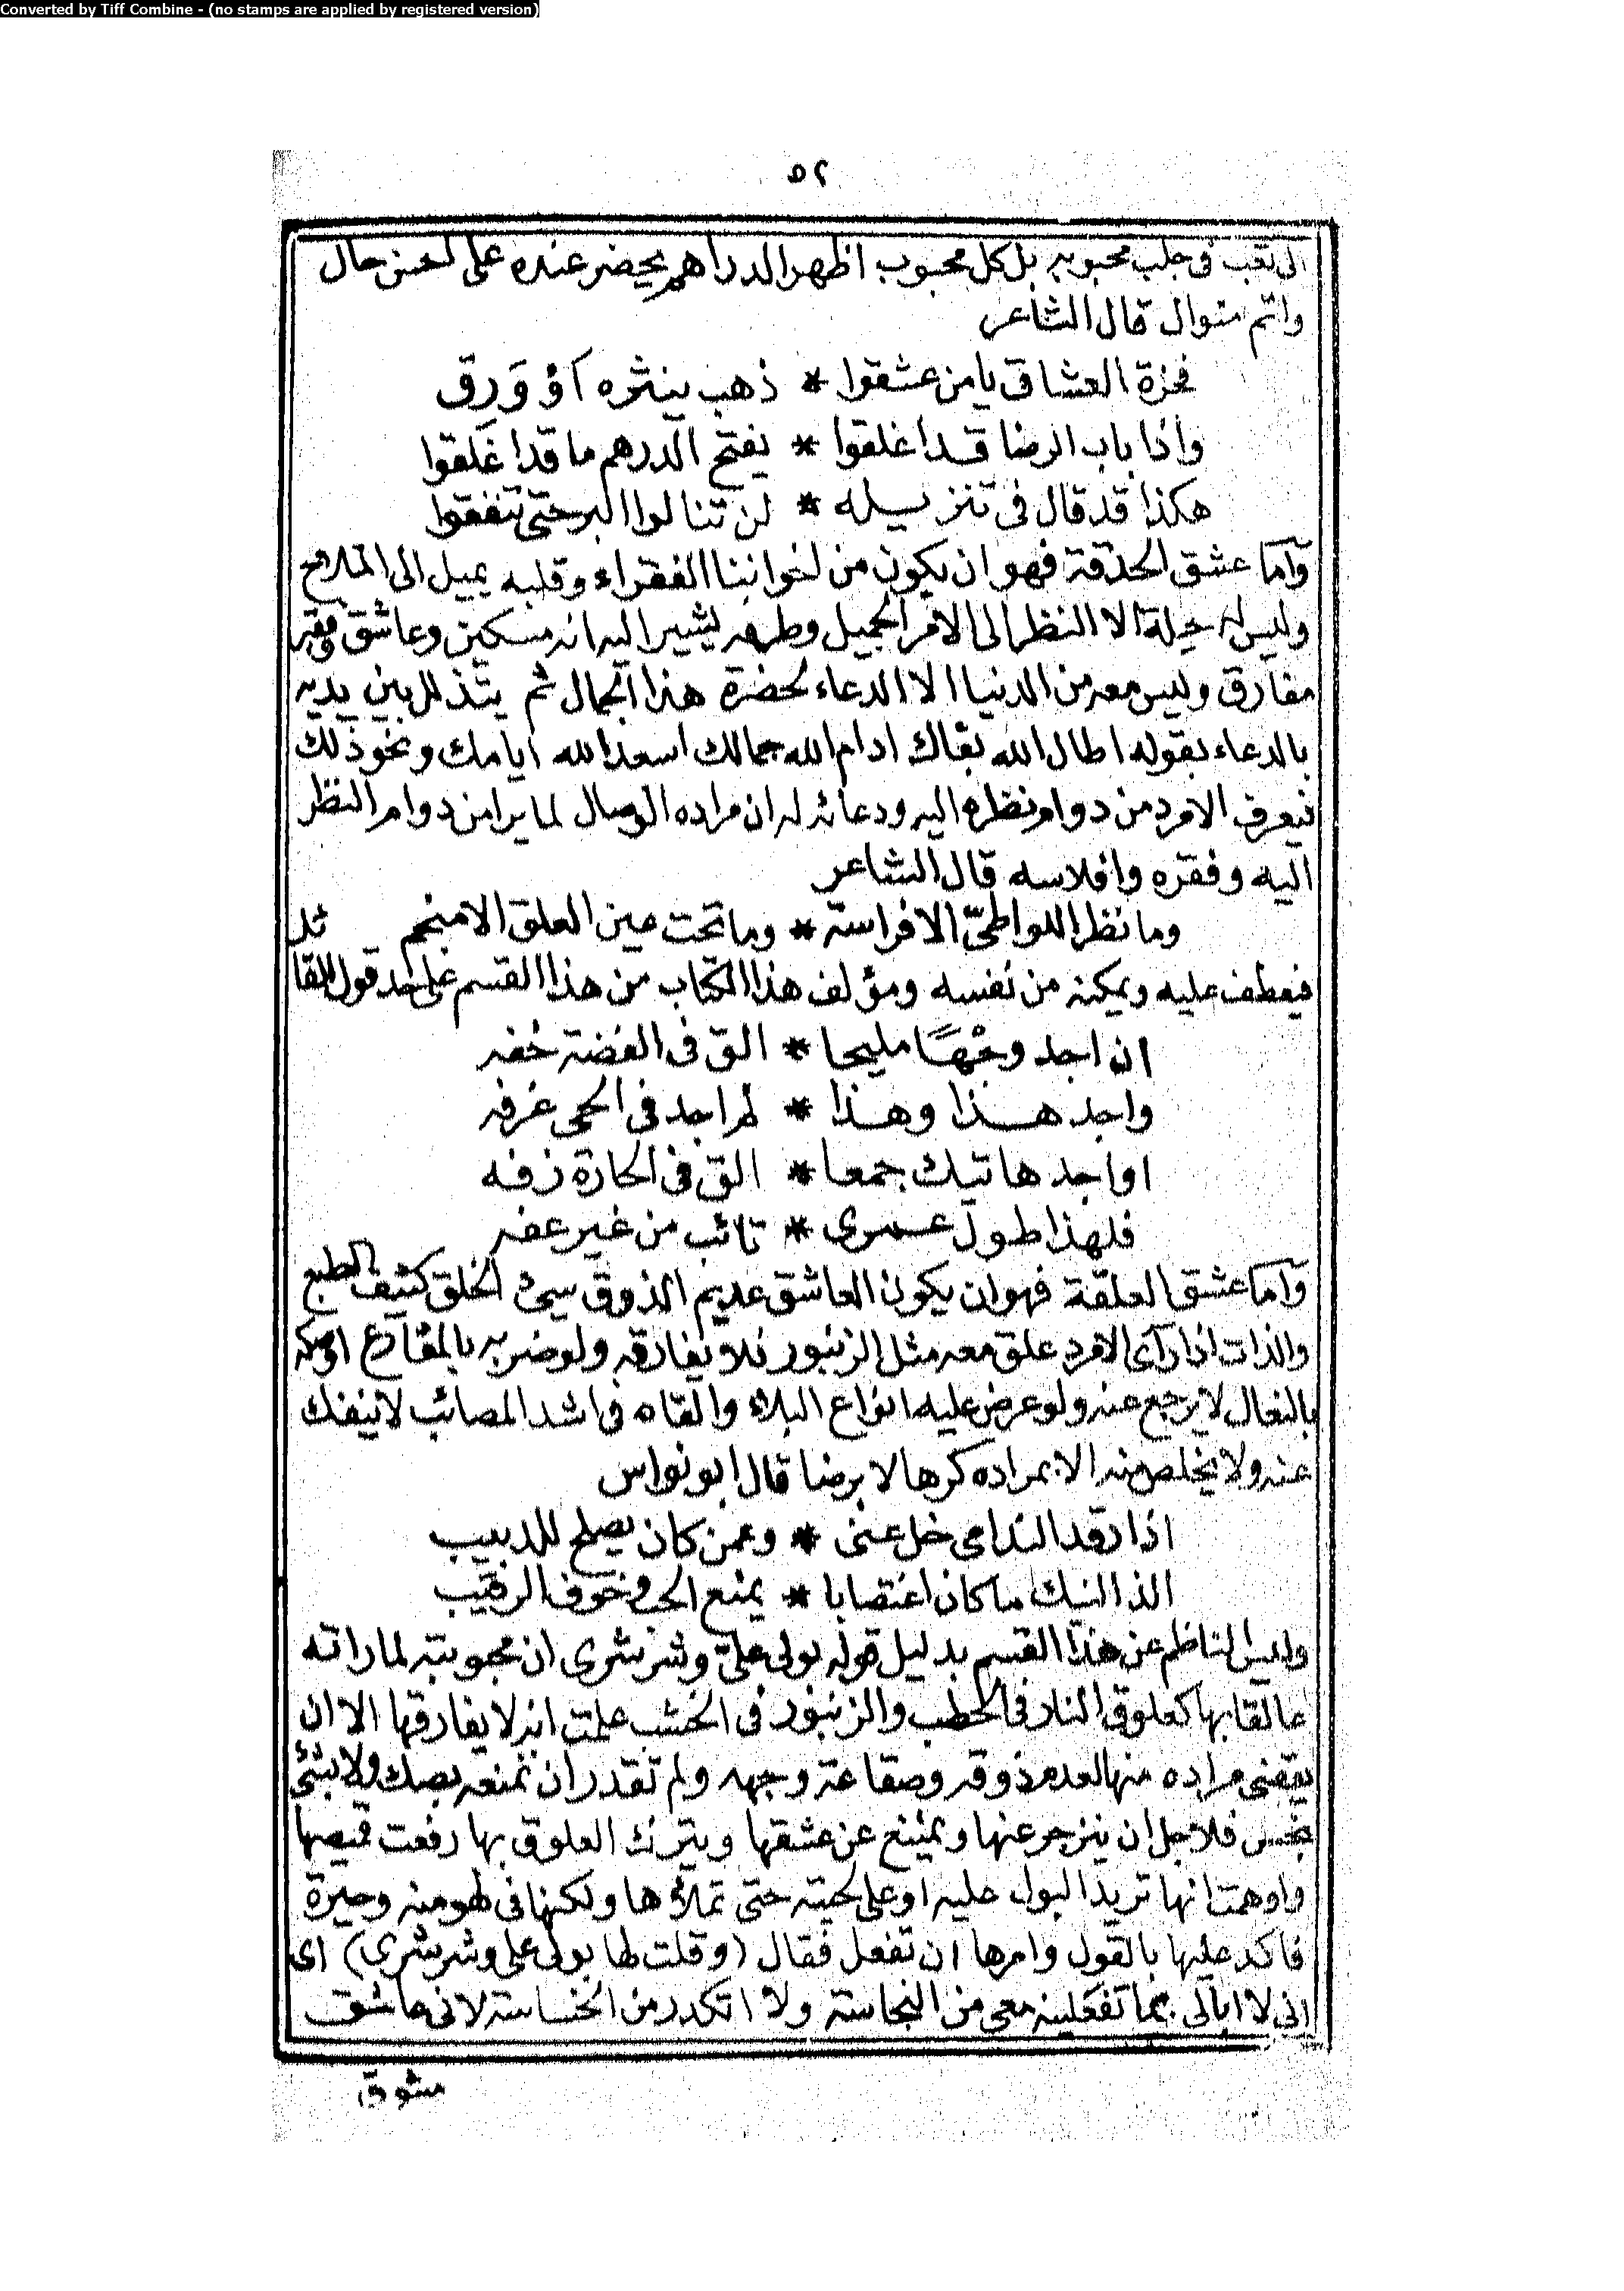 Converted by Tiff Combine - (no stamps are applied by registered version)
٥٢
الى تعب فى جلب محبوبه بل كل محبوب اظهر الدراهم يحضر عنده على احسن حال
واتم منوال قال الشاعر
العشاق يا من عشقوا * ذهب ينثره أو وَرِق
واذا باب الرضا قد اغلقوا * يفتح الدرهم ما قد اغلقوا
هكذا قد قال فى تنزيله * لن تنالوا البر حتى تنفقوا
وأما عشق الحدقة فهو ان يكون من اخواننا الفقراء وقلبه يميل الى الملاح
وليس له حيلة الا النظر الى الامر الجميل وطرفه يشير اليه انه مسكين وعاشق فقير
مفارق وليس معه من الدنيا الا الدعاء لحضرة هذا الجمال ثم يتذلل بين يديه
بالدعاء بقوله اطال الله بقاك ادام الله جمالك اسعد الله ايامك ونحو ذلك
فيعرف الامرد من دوام نظره اليه ودعائه له ان مراده الوصال لما يرا من دوام النظر
اليه وفقره وافلاسه قال الشاعر
وما نظر اللواطىّ الا فراسة * وما تحت عين العلق الا منجم
فيعطف عليه ويمكنه من نفسه ومؤلف هذا الكتاب من هذا القسم على حد قول القائل
ان اجد وجهًا مليحا * الق فى الفضة خفه
واجد هذا وهذا * لم اجد فى الحى غرفه
او اجد هاتيك جمعا * الق فى الحارة زفه
فلهذا طول عمرى * تائب من غير عفه
وأما عشق العلقة فهو ان يكون العاشق عديم الذوق سيئ الخلق كثيف الطبع
والذات اذا رآى الامرد علق معه مثل الزنبور فلا يفارقه ولو ضربه بالمقارع او صكه
بالنعال لا يرجع عنه ولو عرض عليه انواع البلاء والقاه فى اشد المصائب لا ينفك
عنه ولا يخلص منه الا بمراده كرها لا برضا قال ابو نواس
اذا رقد الندامى خل عنى * وعمن كان يصلح للدبيب
الذ النيك ما كان اغتصابا * يمنع الحب خوف الرقيب
وليس الناظم عن هذا القسم بدليل قوله بولى علىّ وشرشرى ان محبوبته لما راته
عالقا بها كعلوق النار فى الحطب والزنبور فى الخشب علمت انه لا يفارقها الا ان
يقضى مراده منها لعدم ذوقه وصقاعة وجهه ولم تقدر ان تمنعه بصك ولا بشئ
نجس فلاجل ان ينزجر عنها ويمتنع عن عشقها ويترك العلوق بها رفعت قميصها
واوهمت انها تريد البول عليه او على لحيته حتى تملأها ولكنها فى طهو منه وحيرة
فاكد عليها بالقول وامرها ان تفعل فقال (وقلت لها بولى على وشرشرى) اى
انى لا ابالى بما تفعلينه معى من النجاسة ولا اتكدر من الخساسة لانى عاشق
مشوق